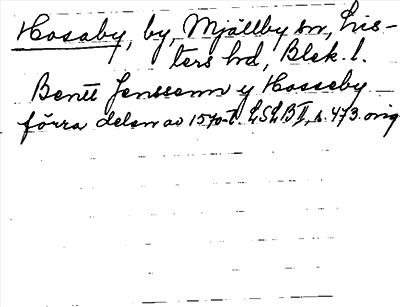 Hosaby, by, Mjällby sn, Lis-
ters hd, Blek. l.
Bentt Jenssenn y Hosseby
förra delen av 1570-t. LSLB II, s. 473. orig